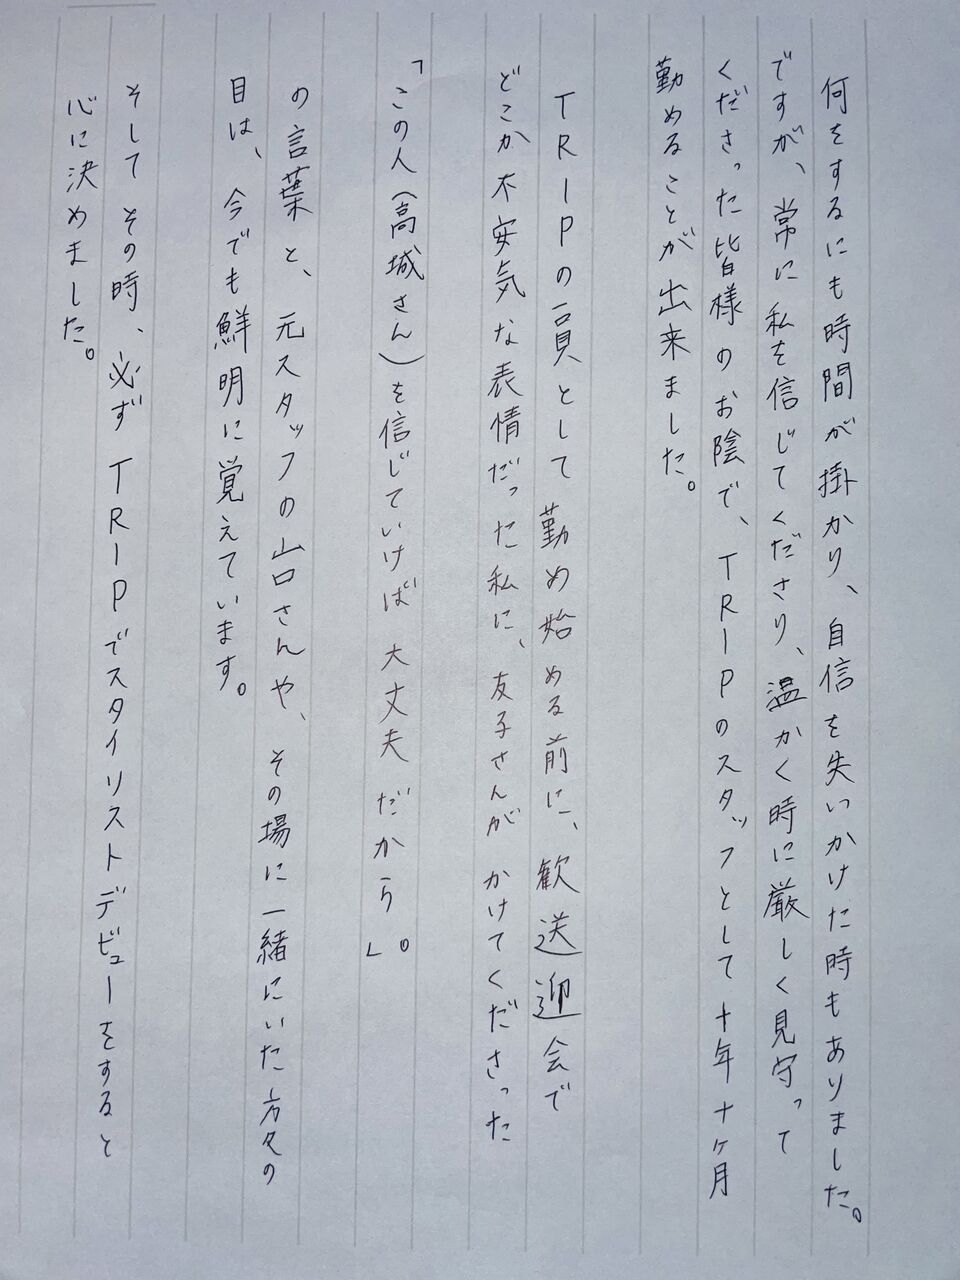 何をするにも時間が掛かり、自信を失いかけた時もありました。
ですが、常に私を信じてくださり、温かく時に厳しく見守って
くださった皆様のお陰で、TRIPのスタッフとして十年十ヶ月
勤めることが出来ました。
TRIPの一員として勤め始める前に、歓送迎会で
どこか不安気な表情だった私に、友子さんがかけてくださった
「この人(高城さん)を信じていけば大丈夫だから。」
の言葉と、元スタッフの山口さんや、その場に一緒にいた方々の
目は、今でも鮮明に覚えています。
そしてその時、必ずTRIPでスタイリストデビューをすると
心に決めました。